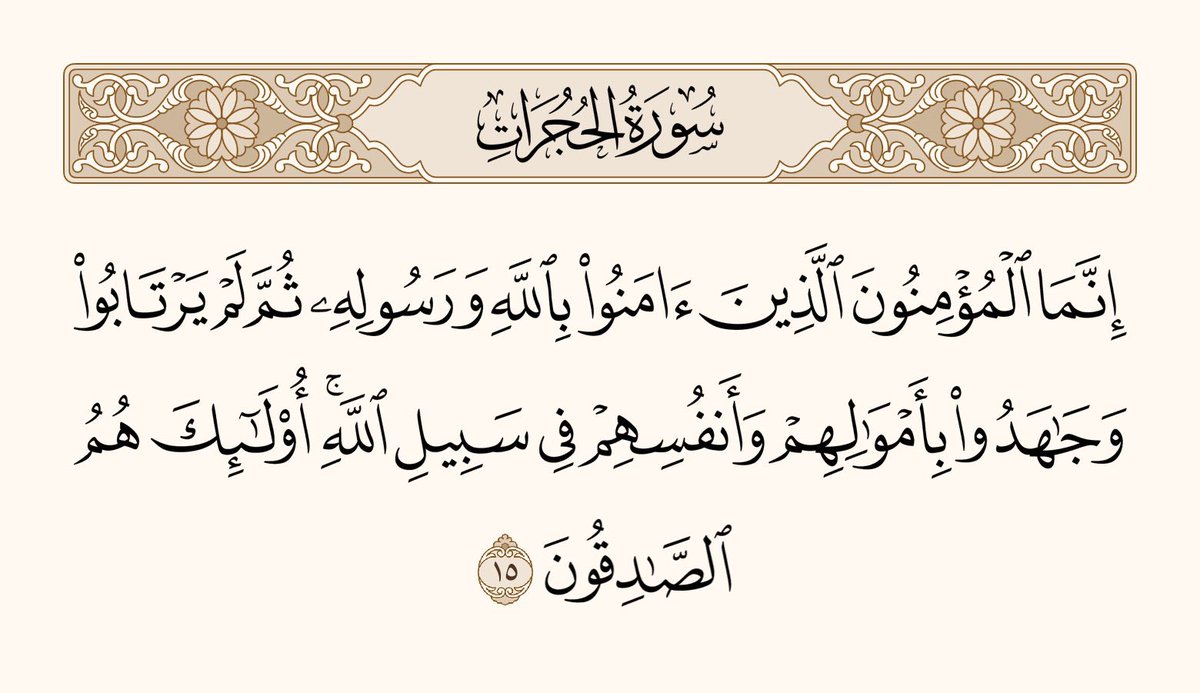 سُورَةُ الحُجُرَاتِ
إِنَّمَا ٱلۡمُؤۡمِنُونَ ٱلَّذِينَ ءَامَنُواْ بِٱللَّهِ وَرَسُولِهِۦ ثُمَّ لَمۡ يَرۡتَابُواْ
وَجَٰهَدُواْ بِأَمۡوَٰلِهِمۡ وَأَنفُسِهِمۡ فِي سَبِيلِ ٱللَّهِۚ أُوْلَٰٓئِكَ هُمُ
ٱلصَّٰدِقُونَ ١٥